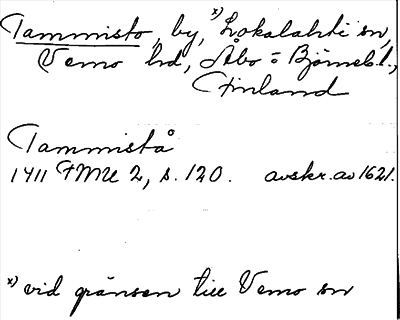 Tammisto, by, x) Lokalahti sn,
Vemo hd, Åbo o Björnebl.,
Finland
Tammistå
1411 FMU 2, s. 120. avskr. av 1621.
x) vid gränsen till Vemo sn